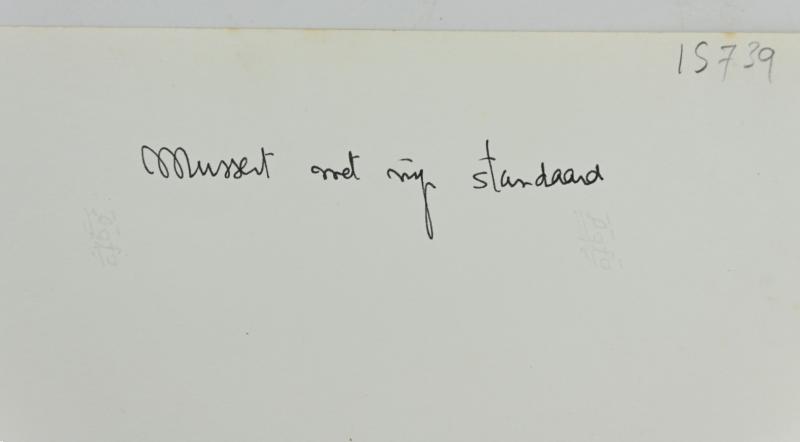 15739
Mussert met zijn standaard